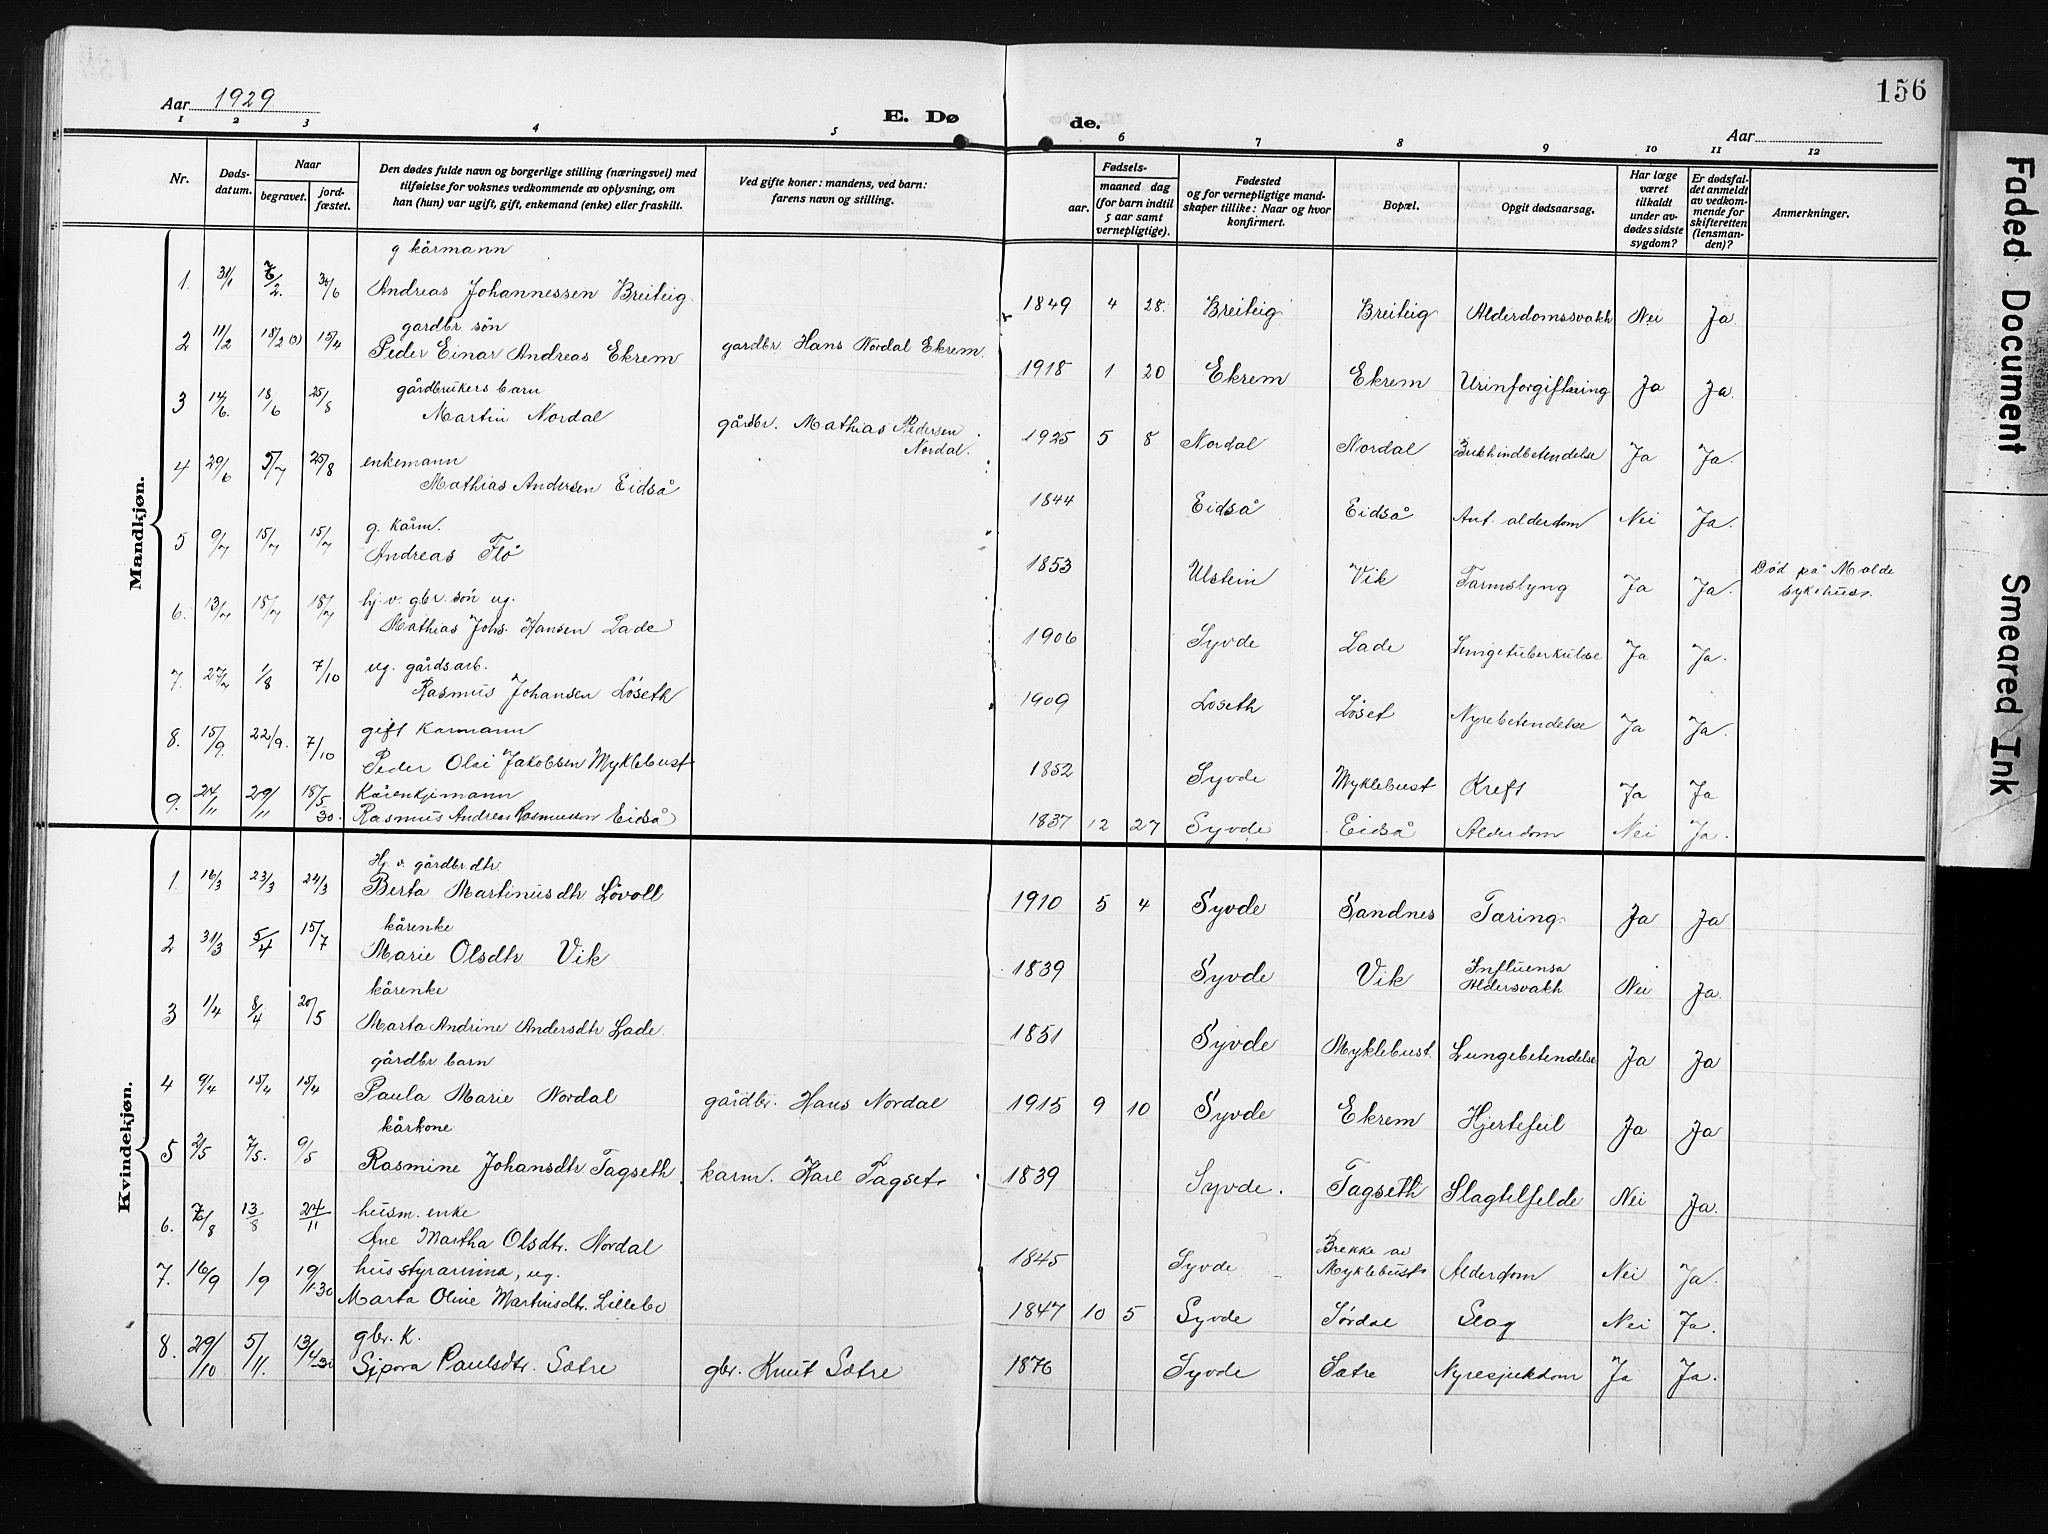 Aar 1929
E. Døde.
Aar
156
1 2 3 4 5 6 7 8 9 10 11 12
Nr.
Døds-
datum.
Naar
begravet.
jord-
fæstet.
Den dødes fulde navn og borgerlige stilling (næringsvei) med
tilføielse for voksnes vedkommende av oplysning, om
han (hun) var ugift, gift, enkemand (enke) eller fraskilt.
Ved gifte koner: mandens, ved barn:
farens navn og stilling.
Fødsels-
aar.
maaned dag
(for barn indtil
5 aar samt
vernepligtige).
Fødested
og for vernepligtige mand-
skaper tillike: Naar og hvor
konfirmert.
Bopæl.
Opgit dødsaarsag.
Har læge
været
tilkaldt
under av-
dødes sidste
sygdom?
Er dødsfal-
det anmeldt
av vedkom-
mende for
skifteretten
(lensman-
den)?
Anmerkninger.
Mandkjøn.
g kårmann
1. 31/1 7/2. /6 Andreas Johannessen Breiteig. 1849 4 28. Breiteig Breiteig Alderdomssvakh Nei Ja
gardbr. søn
2 11/2 18/2 15/4 Peder Einar Andreas Ekrem gardbr. Hans Nordal Ekrem. 1918 1 20 Ekrem Ekrem Urinforgiftning Ja Ja
gårdbrukers barn
3 14/6. 18/6 25/8 Martin Nordal gårdbr. Mathias Pedersen Nordal. 1925 5 8 Nordal Nordal Bukhindbetendelse Ja Ja.
enkemann
4 29/6 5/7 25/8 Mathias Andersen Eidså 1844 Eidså Eidså Ant. alderdom Nei Ja.
g. kårm.
5 9/7 15/7 15/7 Andreas Flø 1853 Ulstein Vik Tarmslyng Ja Ja. Død på Molde sykehus.
hj. v. gbr. søn ug.
6. 13/7 18/7 18/7 Mathias Johs. Hansen Lade 1906 Syvde Lade Lungetuberkulose Ja Ja.
ug. gårdsarb.
7. 27/7 1/8 7/10 Rasmus Johansen Løseth 1909 Løseth Løset Nyrebetendelse Ja Ja.
gift Karmann
8. 15/9. 22/9. 7/10 Peder Olai Jakobsen Myklebust 1852 Syvde Myklebust Kreft Ja Ja
Kårenkjemann
9. 24/11 29/11 18/5 30. Rasmus Andreas Rasmussen Eidså 1837 12 27 Syvde Eidså Alderdom Nei Ja.
Kvindekjøn.
Hj. v. gårdbr dtr.
1. 16/3 23/3 24/3 Berta Martinusdtr Løvoll 1910 5 4 Syvde Sandnes Tæring. Ja Ja
kårenke
2 31/3 5/4 15/7 Marie Olsdtr Vik 1839 Syvde Vik Influensa Aldersvakh. Nei Ja.
kårenke
3 1/4 8/4 20/5 Marta Andrine Andersdtr Lade. 1851 Syvde Myklebust. Lungebetendelse Ja Ja
gårdbr. barn
4 9/4 15/4 15/4 Paula Marie Nordal gårdbr. Hans Nordal 1915 9 10 Syvde Ekrem Hjertefeil Ja Ja
kårkone
5 2/5 7/5. 9/5 Rasmine Johansdtr Tagseth. karm. Karl Tagset 1839 Syvde. Tagseth Slagtilfelde Nei Ja.
husm. enke
6. /8 13/8 24/11 Ane Martha Olsdtr. Nordal 1845 Syvde Brekke av Myklebust Alderdom Nei Ja.
husstyrarinna, ug.
7. 16/9 /9 19/11-30 Marta Oline Martinsdtr. Lillebø 1847 10 5 Syvde Sørdal Slag Nei Ja.
gbr. K.
8. 29/10 5/11. 13/4-30 Sipora Paulsdtr. Sætre gbr. Knut Sætre 1876 Syvde Sætre Nyresjukdom Ja Ja.
Faded Document
Smeared Ink